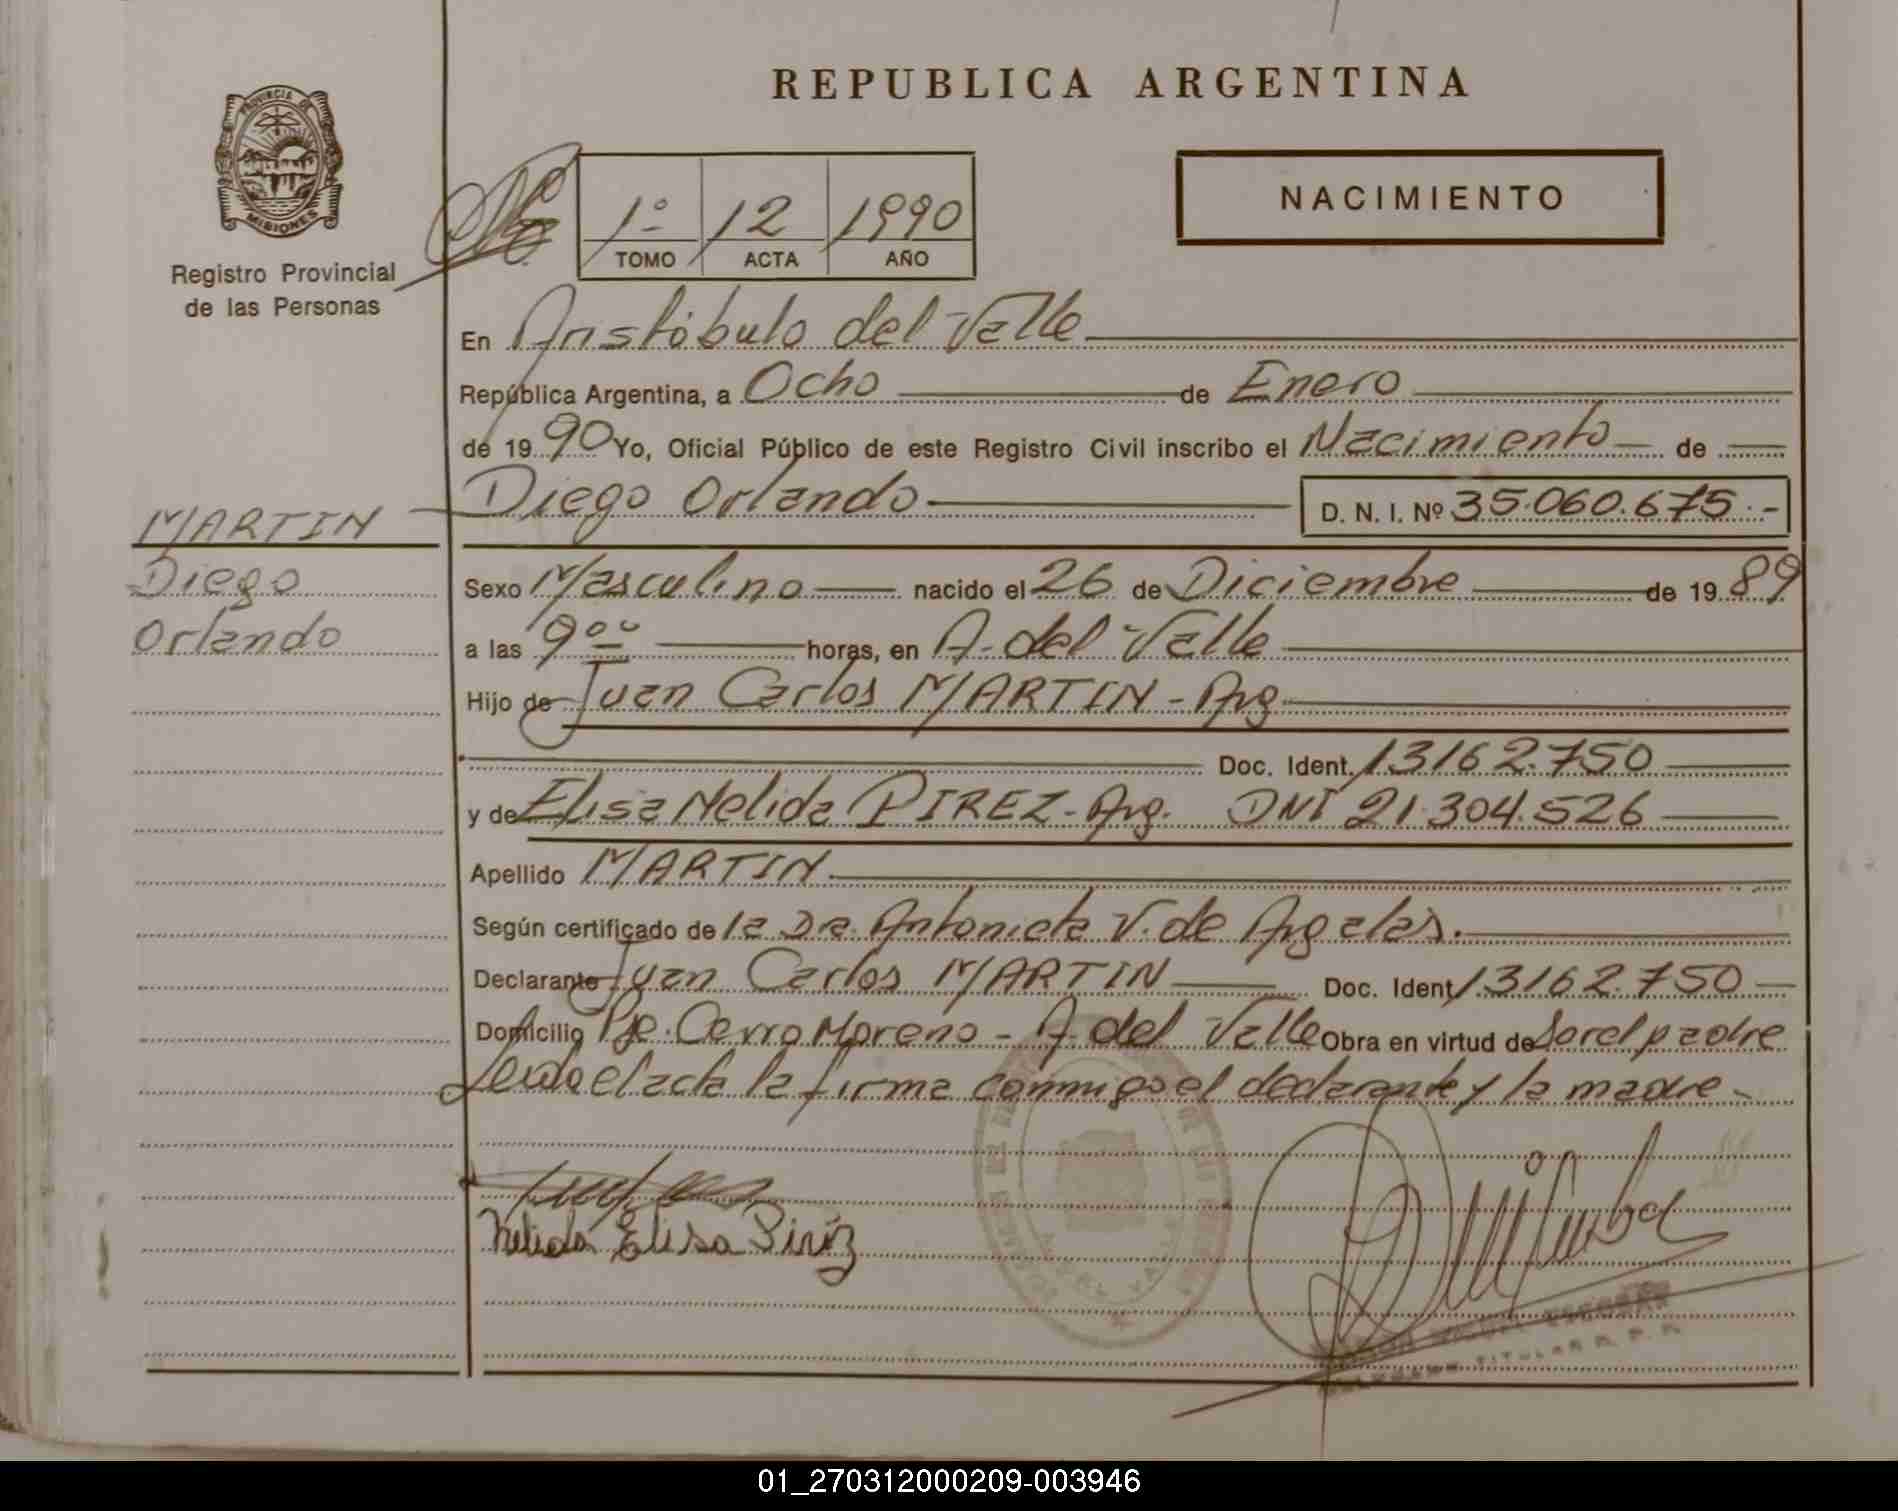 REPUBLICA ARGENTINA
PROVINCIA DE
MISIONES
Registro Provincial
de las Personas
1º 12 1990
TOMO ACTA AÑO
NACIMIENTO
En Aristóbulo del Valle
República Argentina, a Ocho de Enero
de 1990 Yo, Oficial Público de este Registro Civil inscribo el Nacimiento de
Diego Orlando D. N. I. Nº 35.060.675.-
MARTIN
Diego
Orlando
Sexo Masculino nacido el 26 de Diciembre de 1989
a las 9ºº horas, en A. del Valle
Hijo de Juan Carlos MARTIN - Arg
Doc. Ident. 13162.750
y de Elisa Nelida PIREZ - Arg. DNI 21.304.526
Apellido MARTIN
Según certificado de la Dra. Antonieta V. de Argelas.
Declarante Juan Carlos MARTIN Doc. Ident. 13162.750
Domicilio Pje. Cerro Moreno - A. del Valle Obra en virtud de Ser el padre
Leida el acta la firma conmigo el declarante y la madre -
Nelida Elisa Piréz
TITULAR R. P. P.
01_270312000209-003946